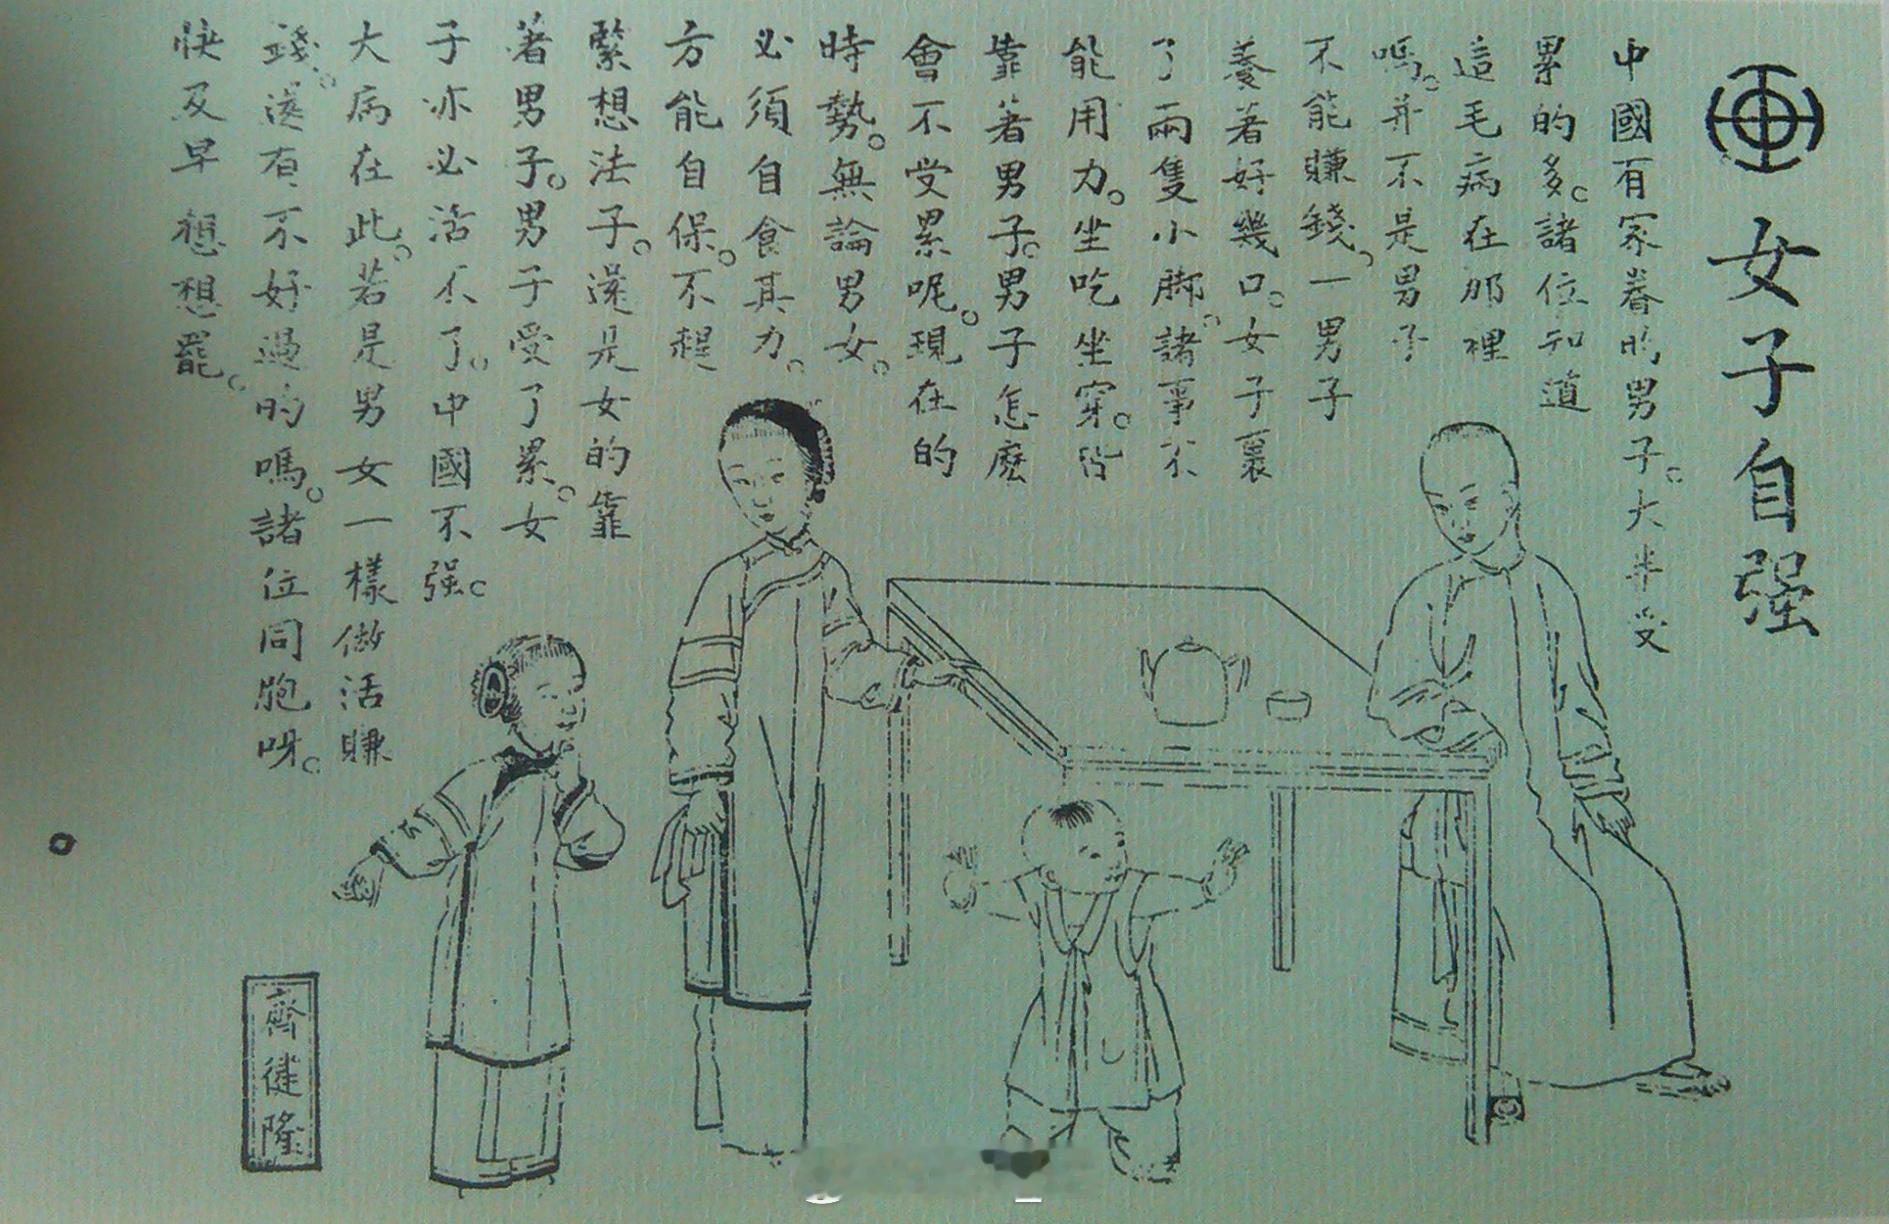 女子自强
中國有家眷的男子。大半受
累的多。諸位知道
這毛病在那裡
嗎。并不是男子
不能賺錢。一男子
養着好幾口。女子裹
了兩隻小脚。諸事不
能用力。坐吃坐穿。皆
靠著男子。男子怎麽
會不受累呢。現在的
時勢。無論男女。
必須自食其力。
方能自保。不趕
緊想法子。還是女的靠
著男子。男子受了累。女
子亦必活不了。中國不强。
大病在此。若是男女一樣做活賺
錢。還有不好過的嗎。諸位同胞呀。
快及早想想罷。
齊健隆